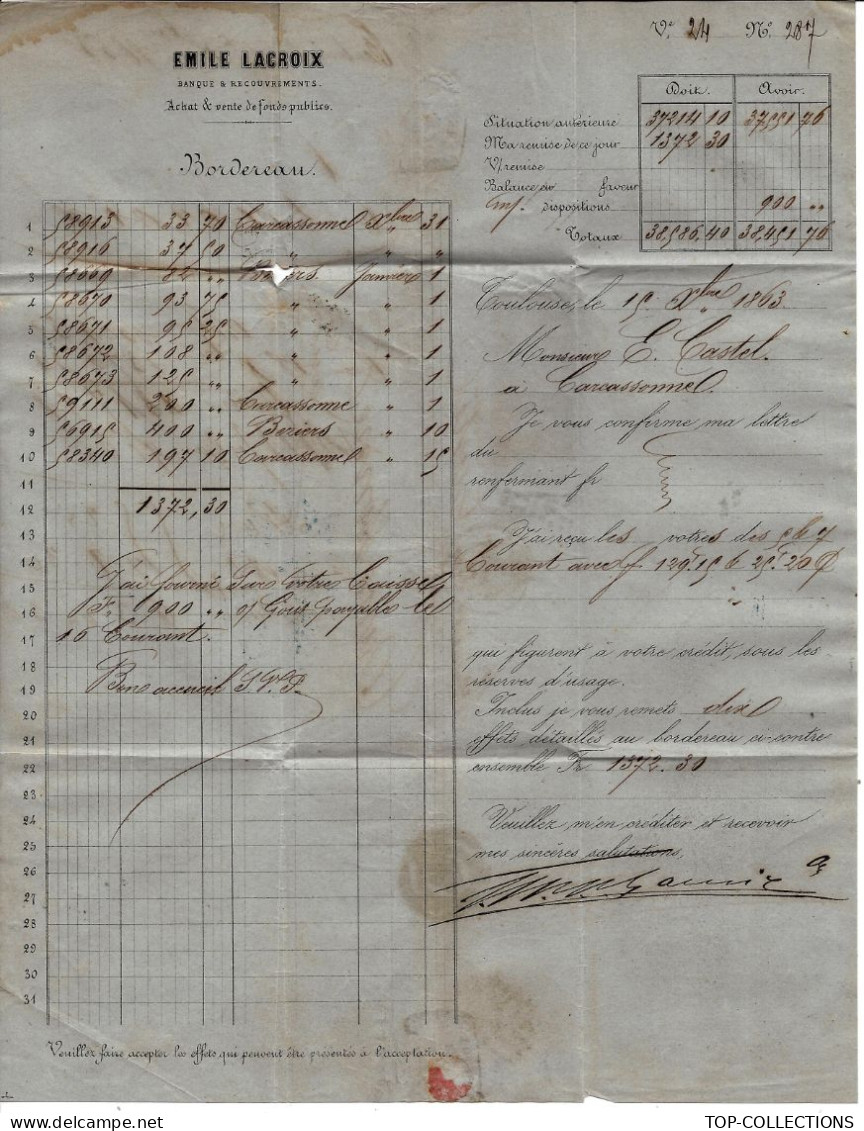 Vᵉ 24 Nº 287
EMILE LACROIX
BANQUE & RECOUVREMENTS.
Achat & vente de fonds publics.
Bordereau.
Doit. Avoir.
Situation antérieure 37214 10 37551 76
Ma remise de ce jour 1372 30
V/remise
Balance en faveur
dispositions 900 ..
Totaux 38,586,40 38,451 76
1 58913 33 70 Carcassonne Xbre 31
2 58916 37 50 " " "
3 58669 82 .. Béziers Janvier 1
4 58670 93 75 " " 1
5 58671 95 25 " " 1
6 58672 108 .. " " 1
7 58673 125 .. " " 1
8 59111 200 .. Carcassonne " 1
9 56915 400 .. Beziers " 10
10 58340 197 10 Carcassonne " 15
11
12 1372,30
13
14
15 J'ai fourni Sur votre Caisse
16 F. 900 .. o/ Gout payable le
17 16 Courant.
18
19 Bon accueil S.V.P.
20
21
22
23
24
25
26
27
28
29
30
31
Veuillez faire accepter les effets qui peuvent être présentés à l'acceptation.
Toulouse, le 15 Xbre 1863.
Monsieur E. Castel.
à Carcassonne.
Je vous confirme ma lettre
du
renfermant fr
J'ai reçu les votres des 5 & 7
Courant avec f. 129.15 & 25.20
qui figurent à votre crédit, sous les
réserves d'usage.
Inclus je vous remets dix
effets détaillés au bordereau ci-contre
ensemble Fr 1372.30
Veuillez m'en créditer et recevoir
mes sincères salutations,
TOP-COLLECTIONS